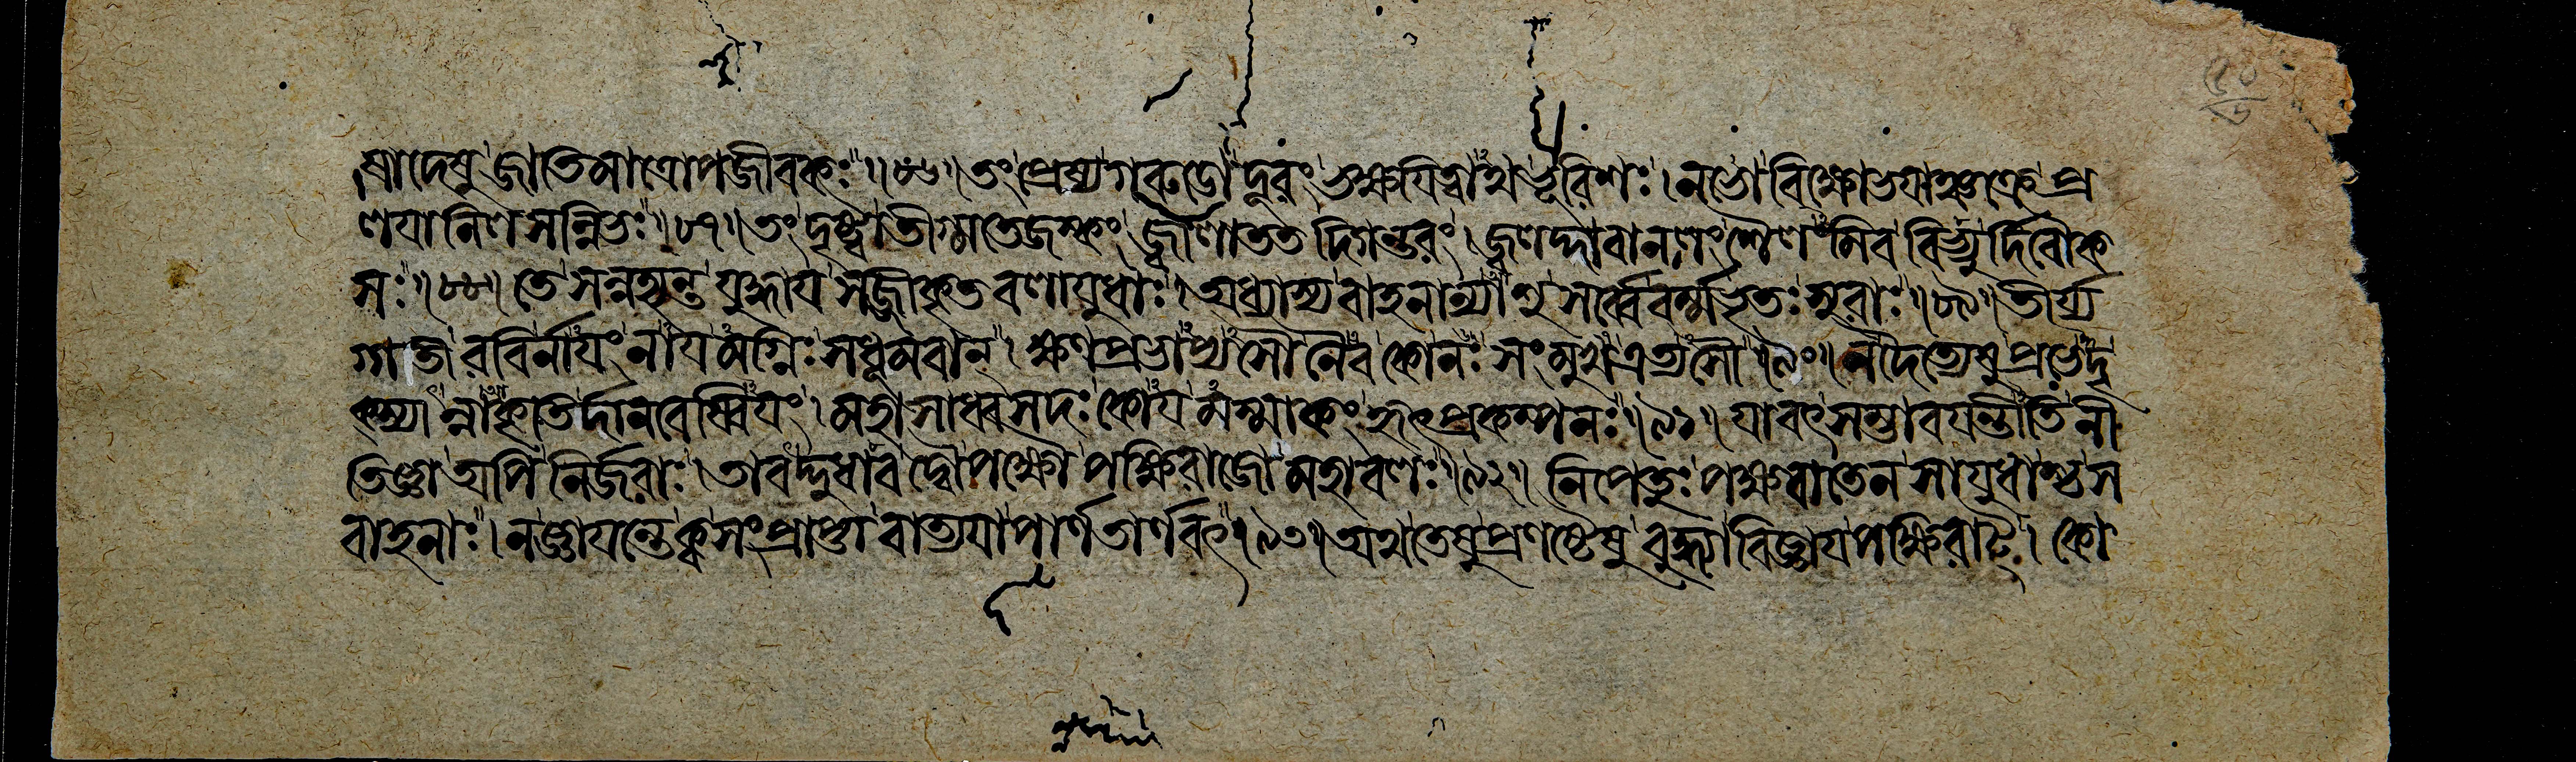 ষাদেষু জাতিমাত্রোপজীবকঃ ॥৮৬॥ তং প্রেষ্য গরুডো দূরং ভক্ষযিত্বাথ ভূরিশঃ । নভো বিক্ষোভযাঞ্চক্রে প্র
লযানিলসন্নিভঃ ॥৮৭॥ তং দৃষ্ট্বা তীগ্মতেজস্কং জ্বালাততদিগন্তরং । জ্বলদ্দাবানলং শৈলমিব বিভ্যুর্দিবৌক
সঃ ॥৮৮॥ তে সন্নহ্যন্ত যুদ্ধায সজ্জীকৃতবলাযুধাঃ । অধ্যাস্য বাহনান্যাশু সর্ব্বে বর্ম্মভৃতঃ সুরাঃ ॥৮৯॥ তীর্য্য
গ্গাতী রবির্নাযং নাযমগ্নিঃ সধূমবান্ । ক্ষণপ্রভাপ্যসৌ নৈব কোনঃ সংমুখ এত্যসৌ ॥৯০॥ ন দৈত্যেষু প্রভেদৃ
কস্যান্নাকৃতির্দানবেষ্বিযং । মহাসাধ্বসদঃ কোযমস্মাকং হৃৎপ্রকম্পনঃ ॥৯১॥ যাবৎ সম্ভাবযন্তীতি নী
তিজ্ঞা অপি নির্জরাঃ । তাবদ্দুধাব দ্বৌ পক্ষৌ পক্ষিরাজো মহাবলঃ ॥৯২॥ নিপেতুঃ পক্ষবাতেন সাযুধাশ্চ স
বাহনাঃ । ন জ্ঞাযন্তে ক্ব সংপ্রাপ্তা বাত্যযা পার্ণতার্ণবৎ ॥৯৩॥ অথ তেষু প্রণষ্টেষু বুদ্ধ্যা বিজ্ঞায পক্ষিরাট্ । কো